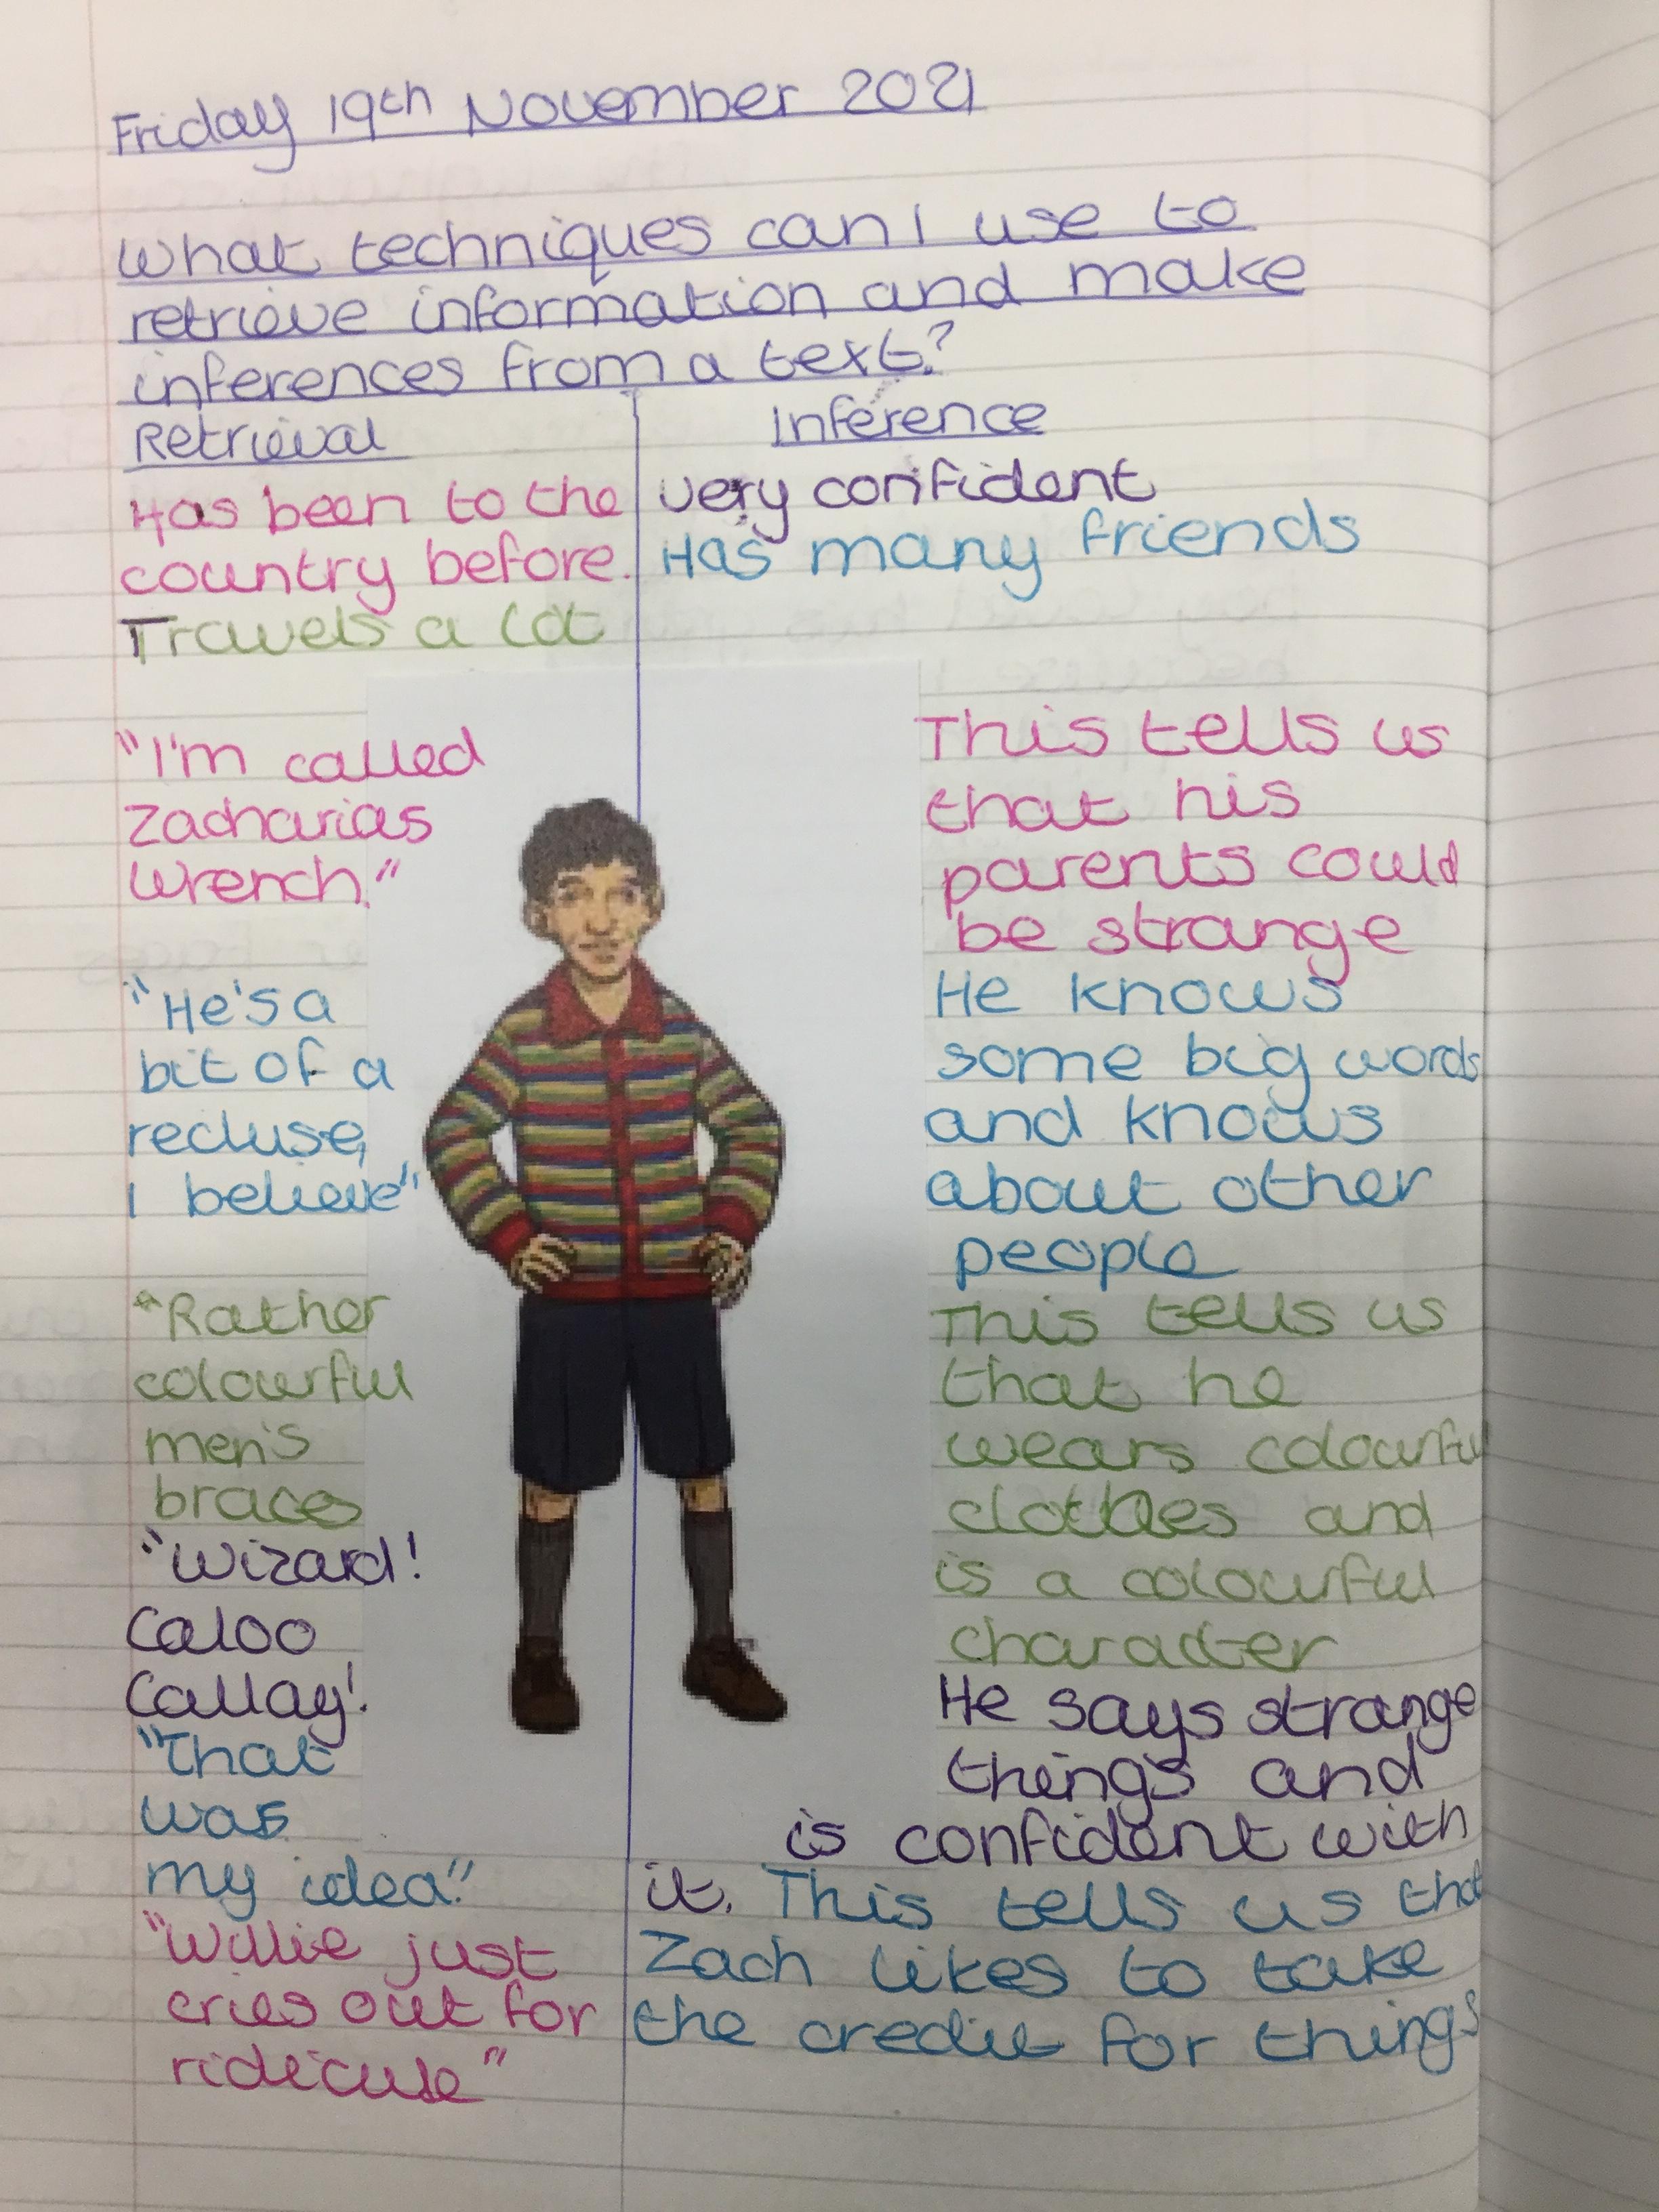 Friday 19th November 2021
What techniques can I use to
retrieve information and make
inferences from a text?
Retrieval
Has been to the
country before.
Travels a lot
"I'm called
Zacharias
Wrench."
"He's a
bit of a
recluse,
I believe"
"Rather
colourful
men's
braces
"Wizard!
Caloo
Callay!
"That
was
my idea."
"Willie just
cries out for
ridicule"
Inference
very confident
Has many friends
This tells us
that his
parents could
be strange
He knows
some big words
and knows
about other
people
This tells us
that he
wears colourful
clothes and
is a colourful
character
He says strange
things and
is confident with
it. This tells us that
Zach likes to take
the credit for things